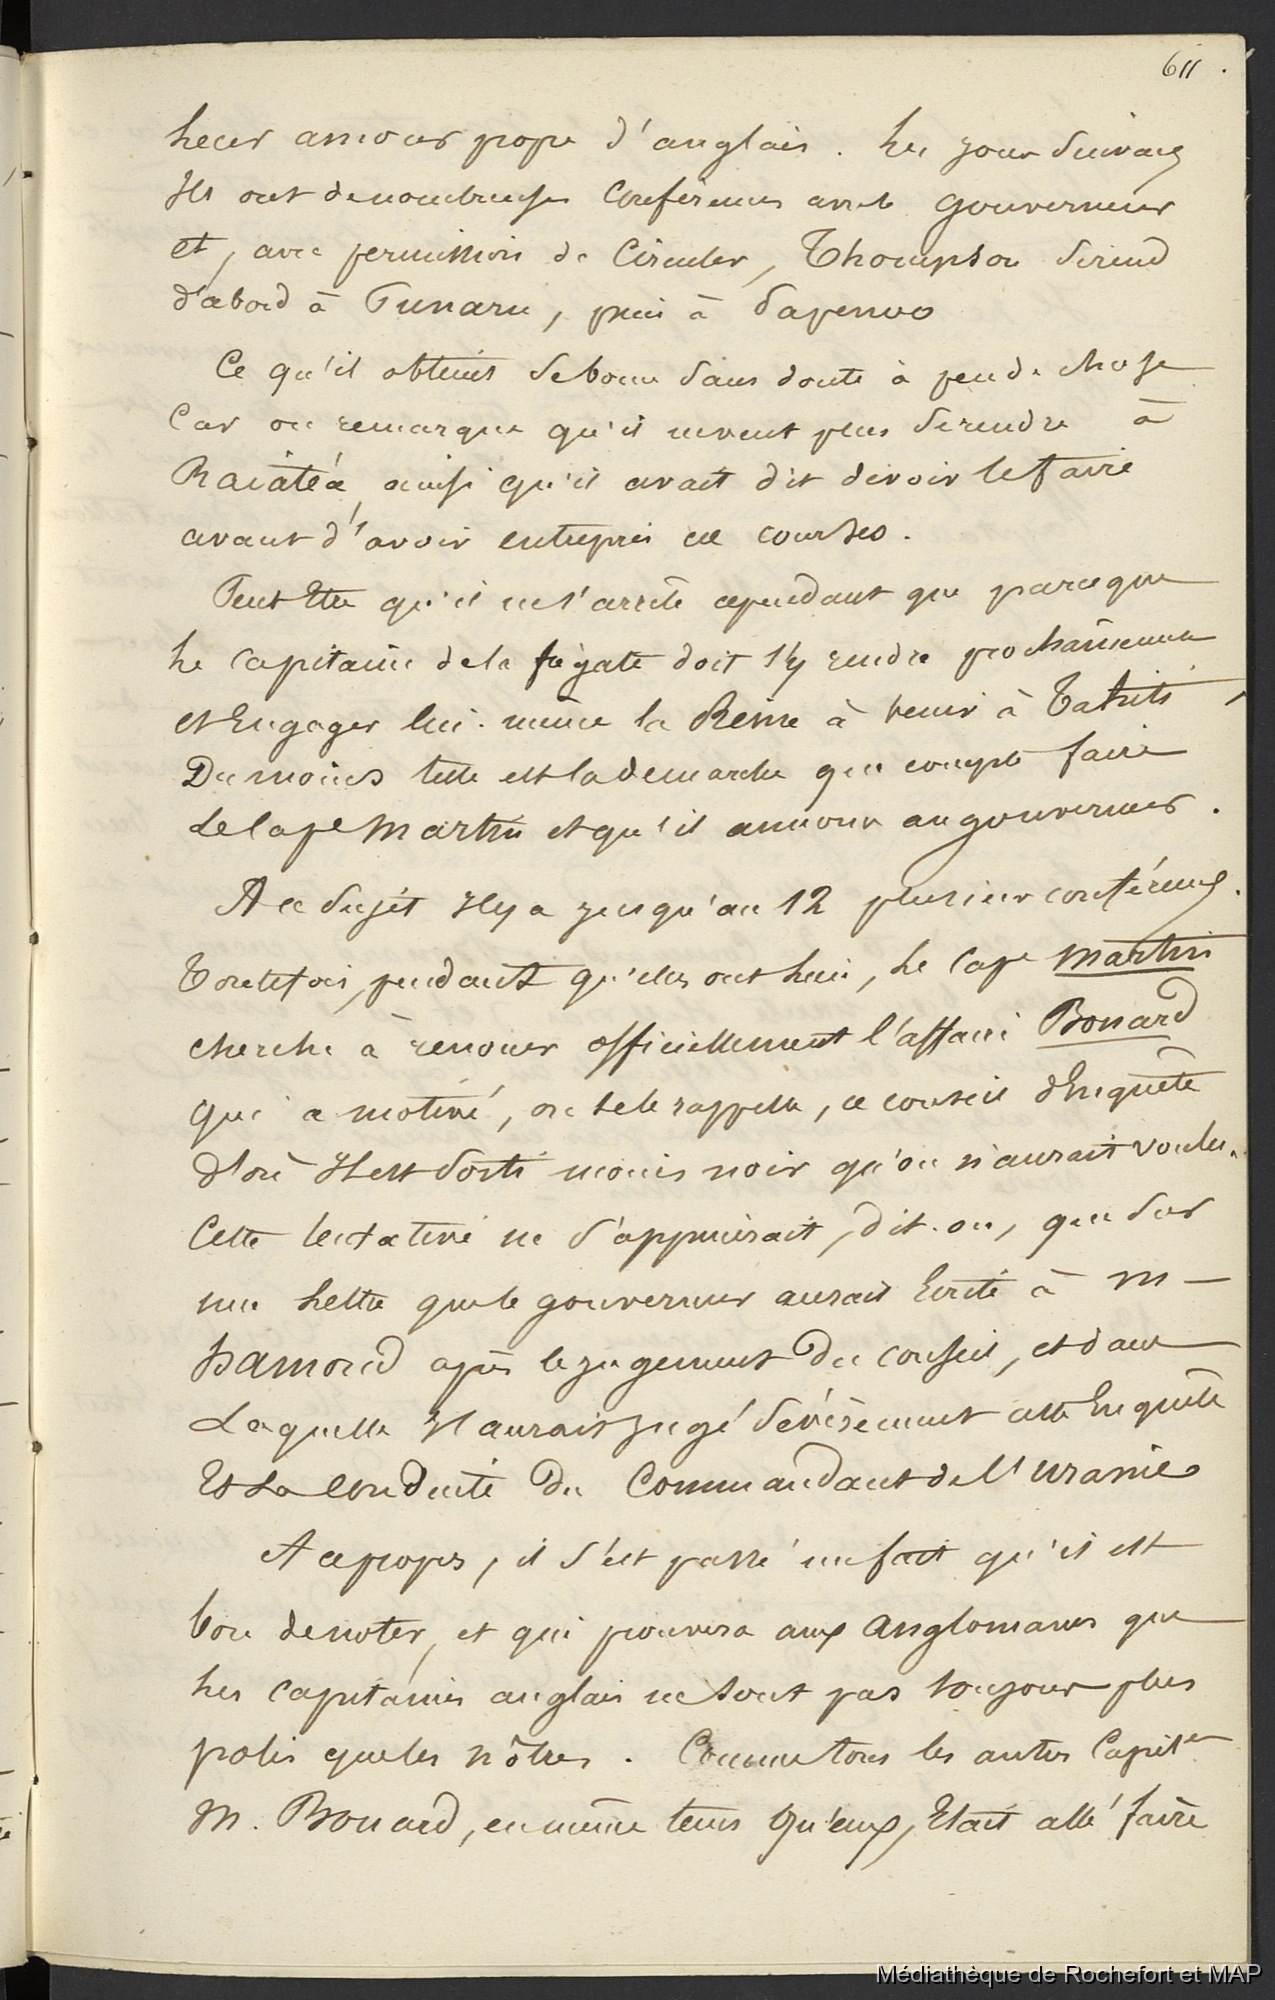 611.
leur amour propre d'anglais. les jours suivans
Ils ont de nombreuses conférences avec le gouverneur
et, avec permission de Circuler, Thompson se rend
d'abord à Punaru, puis à Papenoo
Ce qu'il obtient se borne sans doute à peu de chose
Car on remarque qu'il ne veut plus se rendre à
Raiatéa ainsi qu'il avait dit devoir le faire
avant d'avoir entrepris ces courses.
Peut Etre qu'il ne s'arrête cependant que parceque
le capitaine de la frégate doit s'y rendre prochainement
et Engager lui-même la Reine à venir à Tahiti,
Du moins telle est la demarche que compte faire
Le Cape Martin et qu'il annonce au gouverneur.
A ce Sujet Il y a jusqu'au 12 plusieurs conférences.
Toutefois, pendant qu'elles ont lieu, le Cape Martin
cherche à renouer officiellement l'affaire Bonard
qui a motivé, on se le rappelle, ce conseil d'Enquête
d'où Il est sorti moins noir qu'on n'aurait voulu.
Cette tentative ne s'appuierait, dit-on, que sur
une lettre que le gouverneur aurait Ecrite à M-
hamond après le jugement du conseil, et dans
Laquelle Il aurait jugé sévèrement cette Enquête
Et La Conduite du Commandant de l'Uranie
A ce propos, il s'est passé un fait qu'il est
bon de noter, et qui prouvera aux anglomanes que
les capitaines anglais ne sont pas toujours plus
polis que les nôtres. Comme tous les autres Capitnes
M. Bonard, en même tems qu'eux, Etait allé faire
Médiathèque de Rochefort et MAP